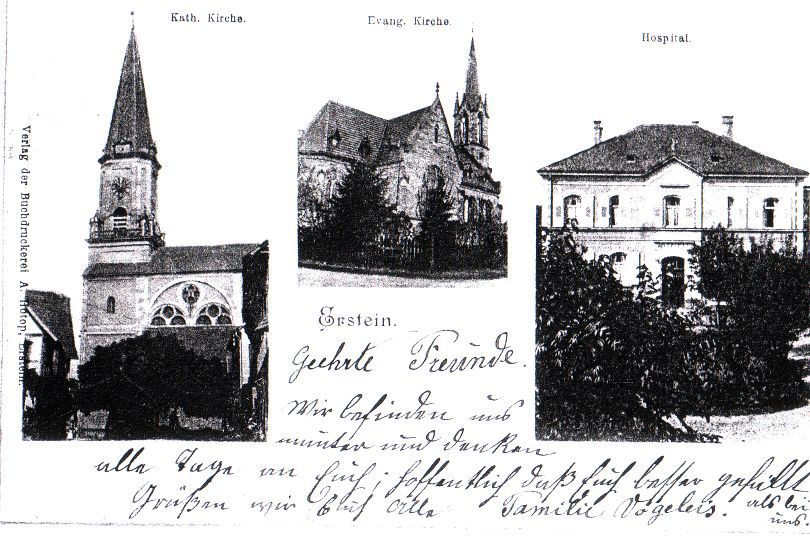 Kath. Kirche.
Evang. Kirche.
Hospital.
Verlag der Buchdruckerei A. Hotop, Erstein.
Erstein.
Geehrte Freunde.
Wir befinden uns
munter und denken
alle Tage an Euch; hoffentlich daß Euch besser gefällt
als bei
uns.
Grüßen wir Euch Alle Familie Vögeleis.